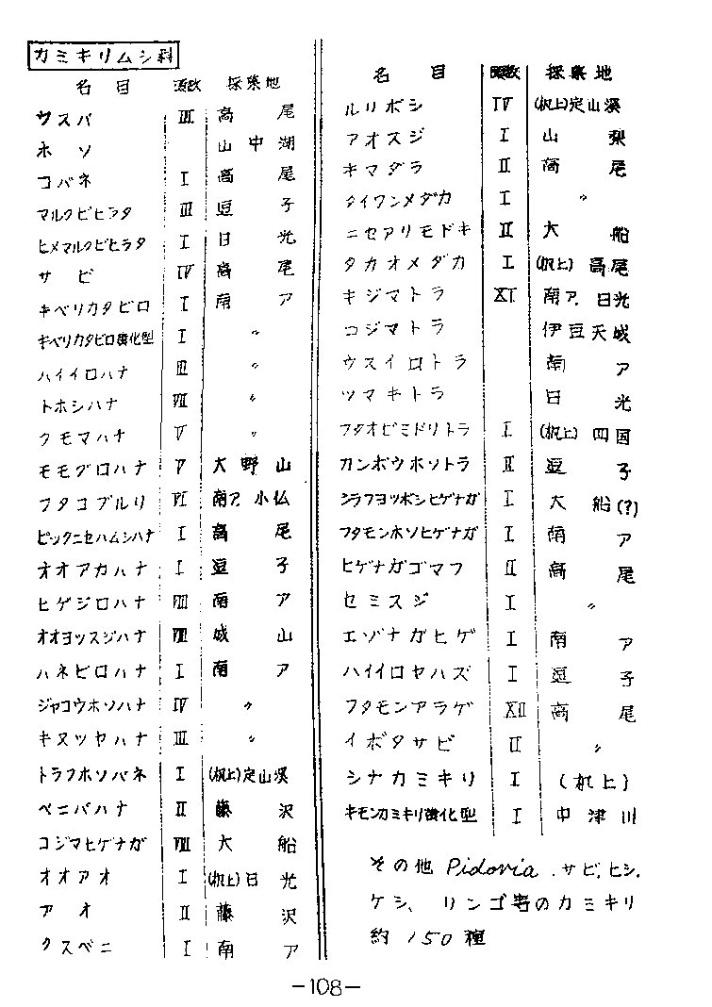 カミキリムシ科
名 目 頭数 採集地
サスバ III 高尾
ホソ 山中湖
コバネ I 高尾
マルクビヒラタ III 逗子
ヒメマルクビヒラタ I 日光
サビ IV 高尾
キベリカタビロ I 南ア
キベリカタビロ強化型 I 〃
ハイイロハナ 〃
トホシハナ VII 〃
クモマハナ V 〃
モモグロハナ V 大野山
フタコブルリ VI 南ア.小仏
ピックニセハムシハナ I 高尾
オオアカハナ I 逗子
ヒゲジロハナ VIII 南ア
オオヨツスジハナ VIII 城山
ハネビロハナ I 南ア
ジャコウホソハナ IV 〃
キヌツヤハナ III 〃
トラフホソバネ I (机上)定山渓
ベニバハナ II 藤沢
コジマヒゲナガ VIII 大船
オオアオ I (机上)日光
アオ II 藤沢
クスベニ I 南ア
名 目 頭数 採集地
ルリボシ IV (机上)定山渓
アオスジ I 山梨
キマダラ II 高尾
タイワンメダカ I 〃
ニセアリモドキ II 大船
タカオメダカ I (机上)高尾
キジマトラ XI 南ア.日光
コジマトラ 伊豆天城
ウスイロトラ 南ア
ツマキトラ 日光
フタオビミドリトラ I (机上)四国
カンボウホソトラ II 逗子
シラフヨツボシヒゲナガ I 大船(?)
フタモンホソヒゲナガ I 南ア
ヒゲナガゴマフ II 高尾
セミスジ I 〃
エゾナガヒゲ I 南ア
ハイイロヤハズ I 逗子
フタモンアラゲ XII 高尾
イボタサビ II 〃
シナカミキリ I (机上)
キモンカミキリ強化型 I 中津川
その他 Pidonia.サビ,ヒシ,
ケシ、リンゴ寄のカミキリ
約150種
-108-